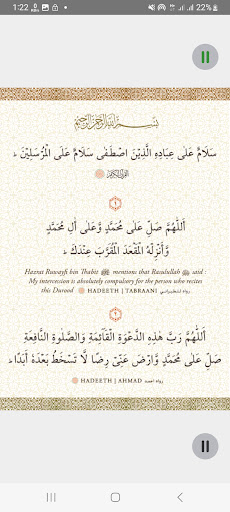 1:22
22%
بِسْمِ اللهِ الرَّحْمٰنِ الرَّحِيْمِ
سَلَامٌ عَلٰى عِبَادِهِ الَّذِيْنَ اصْطَفٰى سَلَامٌ عَلَى الْمُرْسَلِيْنَ
القرآن الكريم
١
اَللّٰهُمَّ صَلِّ عَلٰى مُحَمَّدٍ وَّعَلٰى اٰلِ مُحَمَّدٍ
وَّأَنْزِلْهُ الْمَقْعَدَ الْمُقَرَّبَ عِنْدَكَ
Hazrat Ruwayfi bin Thabit mentions that Rasulullah ﷺ said :
My intercession is absolutely compulsory for the person who recites
this Durood HADEETH | TABRAANI رواه الطبراني
٢
اَللّٰهُمَّ رَبَّ هٰذِهِ الدَّعْوَةِ الْقَآئِمَةِ وَالصَّلٰوةِ النَّافِعَةِ
صَلِّ عَلٰى مُحَمَّدٍ وَّارْضَ عَنِّيْ رِضًا لَّا تَسْخَطُ بَعْدَهٗ أَبَدًا
HADEETH | AHMAD رواه احمد